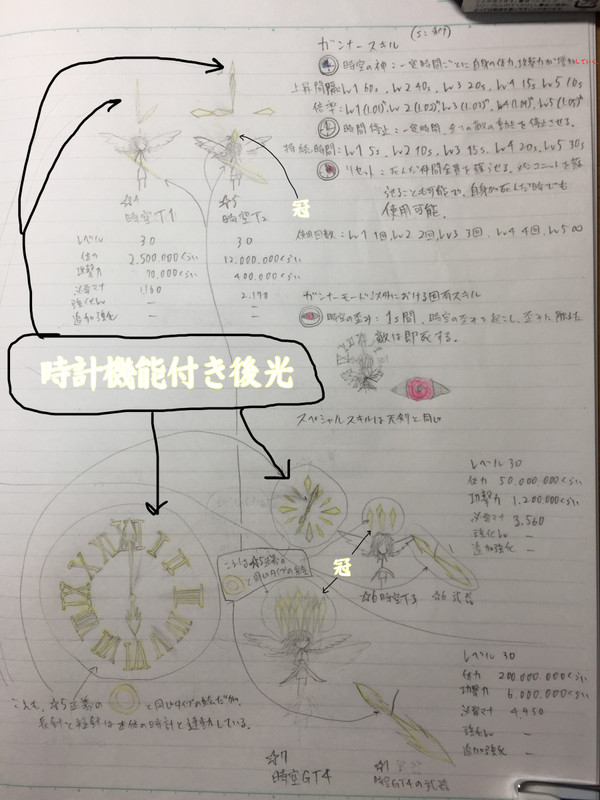 ガンナースキル
時空の神：一定時間ごとに自身の体力、攻撃力が増加していく
上昇間隔 Lv1 60s, Lv2 40s, Lv3 20s, Lv4 15s, Lv5 10s
倍率: Lv1 (1.01) Lv2 (1.02) Lv3 (1.03) Lv4 (1.04) Lv5 (1.05)
時間停止：一定時間、全ての敵の動きを停止させる。
持続時間: Lv1 5s, Lv2 10s, Lv3 15s, Lv4 20s, Lv5 30s
リセット：死んだ仲間全員を蘇らせる。
ことも可能で、自身が死んだ時でも
使用可能.
使用回数: Lv1 1回, Lv2 2回, Lv3 3回, Lv4 4回, Lv5 ∞
ガンナーモード以外における固有スキル
時空の歪み：1s間、時空の歪みを起こし、歪みに触れた
敵は即死する。
スペシャルスキルは天剣と同じ
冠
時空T1
☆5
時空T2
レベル 30 30
体力 2,500,000くらい 12,000,000くらい
攻撃力 70,000くらい 400,000くらい
必要マナ 1,160 2,190
強化Lv － －
追加強化 － －
時計機能付き後光
レベル 30
体力 50,000,000くらい
攻撃力 1,200,000くらい
必要マナ 3,560
強化Lv －
追加強化 －
こいつも☆5正義の
と同じタイプの絵
冠
☆6時空T3
☆6 武器
レベル 30
体力 200,000,000くらい
攻撃力 6,000,000くらい
必要マナ 4,950
強化Lv －
追加強化 －
XII I II III IV V VI VII VIII IX X XI
これも、☆5正義の と同じタイプの絵だが、
長針と短針は本体の時計と連動している。
☆7
時空GT4
☆7
時空GT4の武器